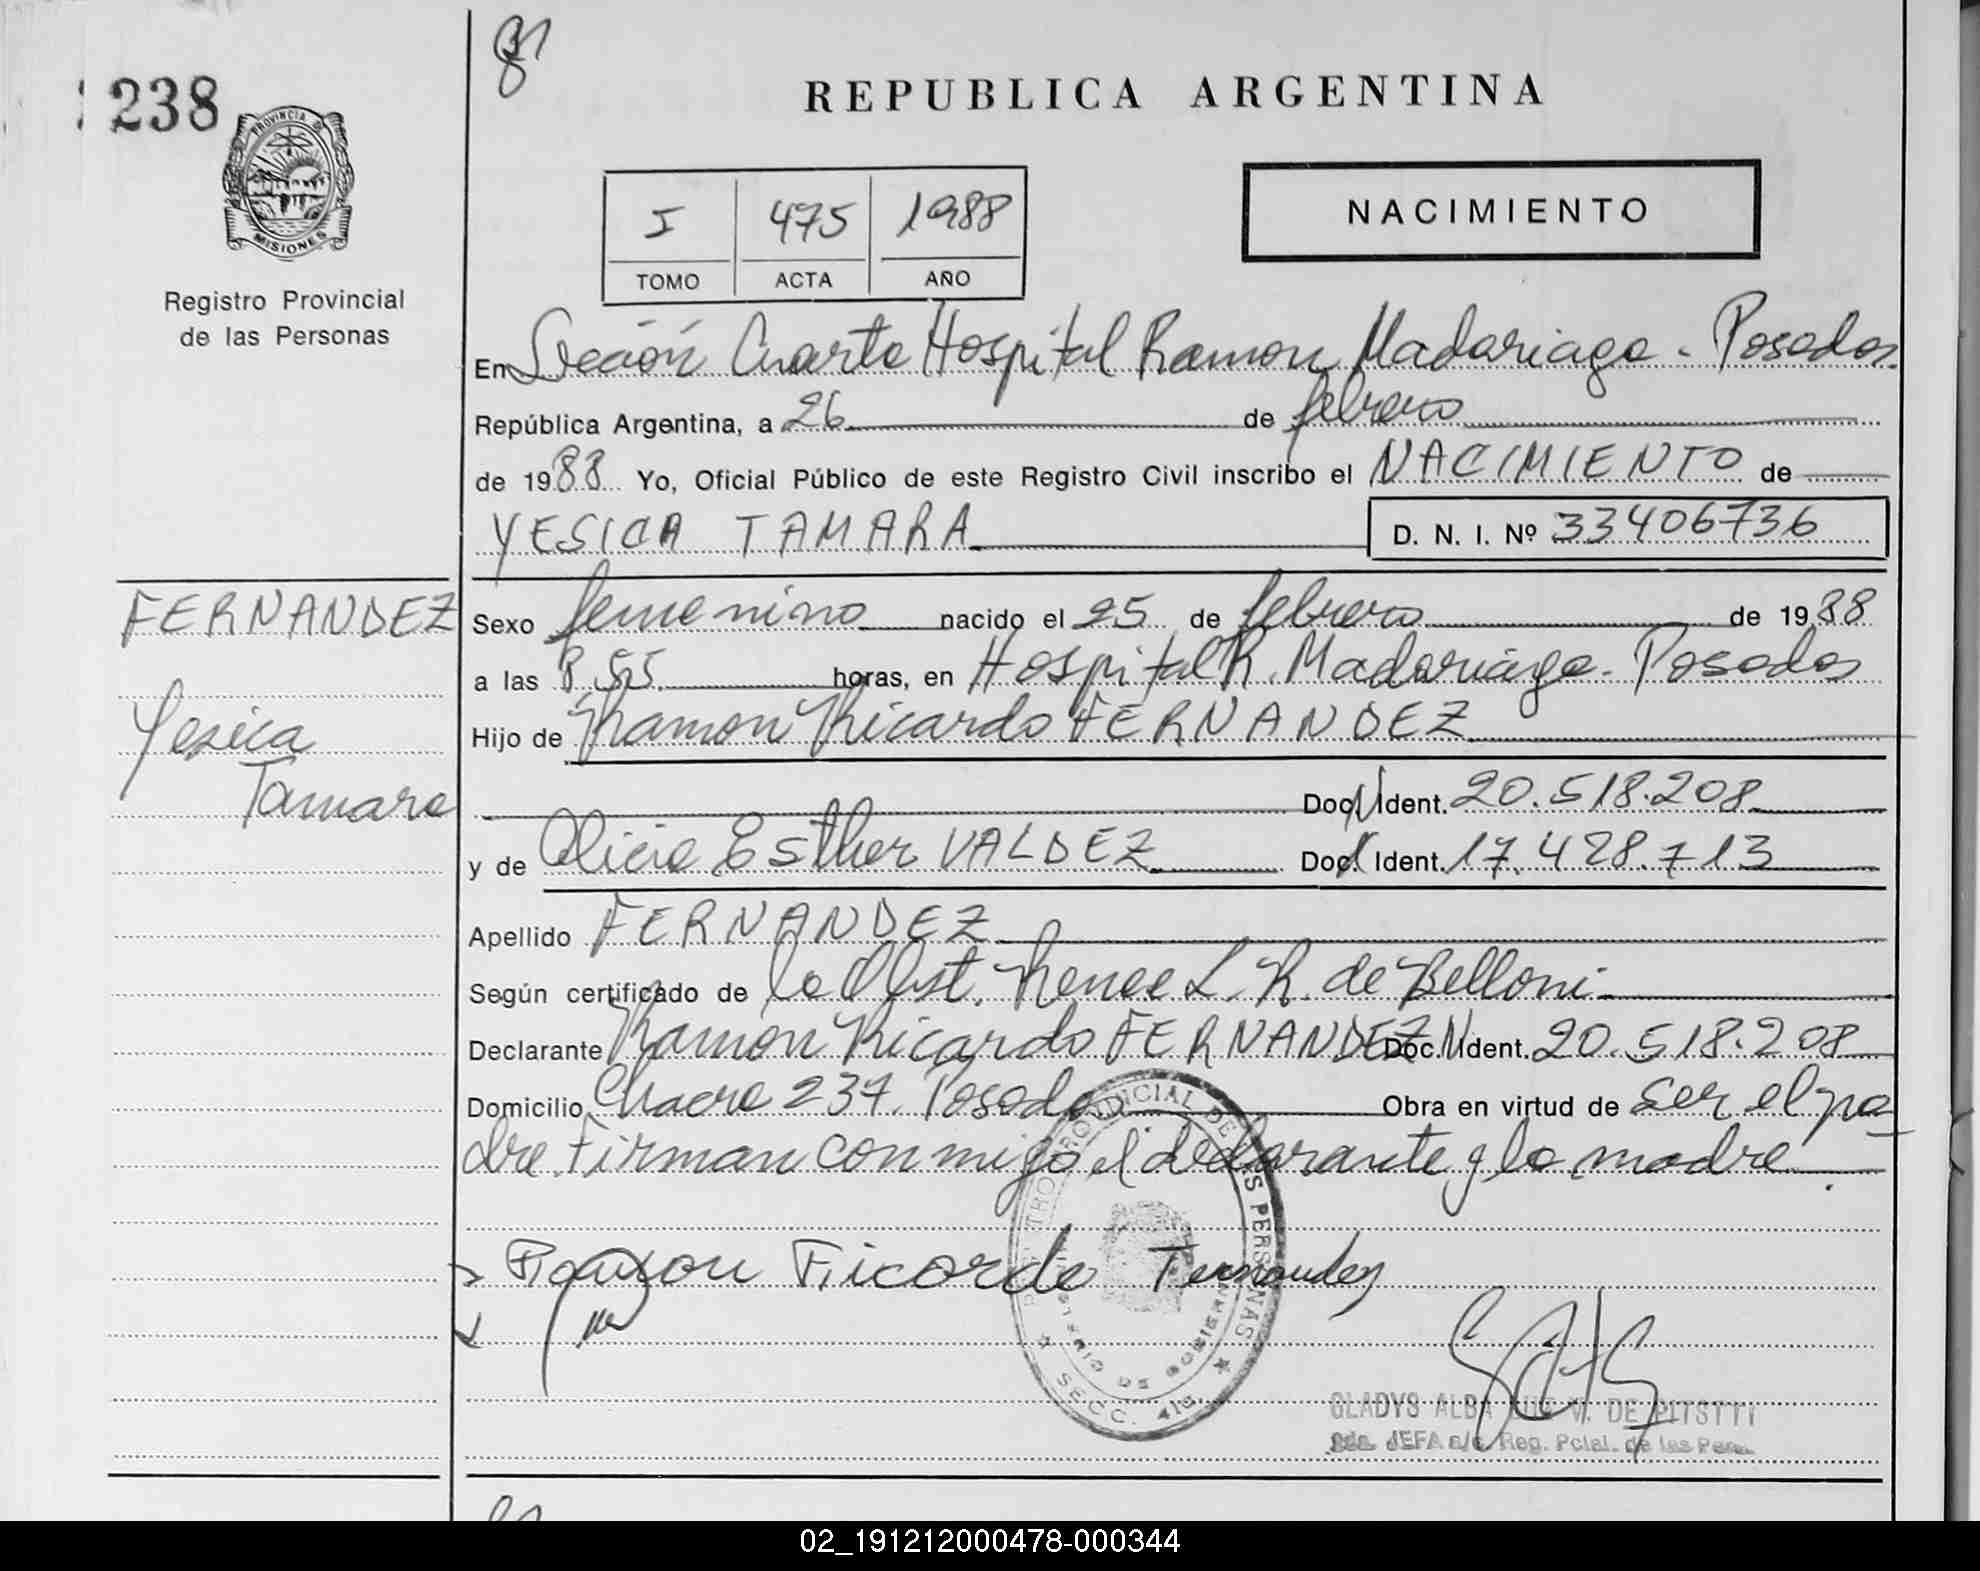 238
PROVINCIA DE
MISIONES
Registro Provincial
de las Personas
REPUBLICA ARGENTINA
I 475 1988
TOMO ACTA AÑO
NACIMIENTO
En Sección Cuarta Hospital Ramon Madariaga - Posadas
República Argentina, a 26 de febrero
de 1988 Yo, Oficial Público de este Registro Civil inscribo el NACIMIENTO de
YESICA TAMARA D. N. I. Nº 33406736
FERNANDEZ
Yesica
Tamara
Sexo femenino nacido el 25 de febrero de 1988
a las 8,55 horas, en Hospital R. Madariaga - Posadas
Hijo de Ramon Ricardo FERNANDEZ
Doc. N Ident. 20.518.208
y de Alicia Esther VALDEZ Doc. Ident. 17.428.713
Apellido FERNANDEZ
Según certificado de la Obst. Renee L. R. de Belloni
Declarante Ramón Ricardo FERNANDEZ Doc. N Ident. 20.518.208
Domicilio Chacra 237. Posadas Obra en virtud de ser el pa
dre. Firman conmigo el declarante y la madre.
Ramon Ricardo Fernandez
REGISTRO PROVINCIAL DE LAS PERSONAS
MINISTERIO DE GOBIERNO
SECC. 4ta.
GLADYS ALBA V. DE
JEFA a/c Reg. Pcial. de las Pers.
02_191212000478-000344